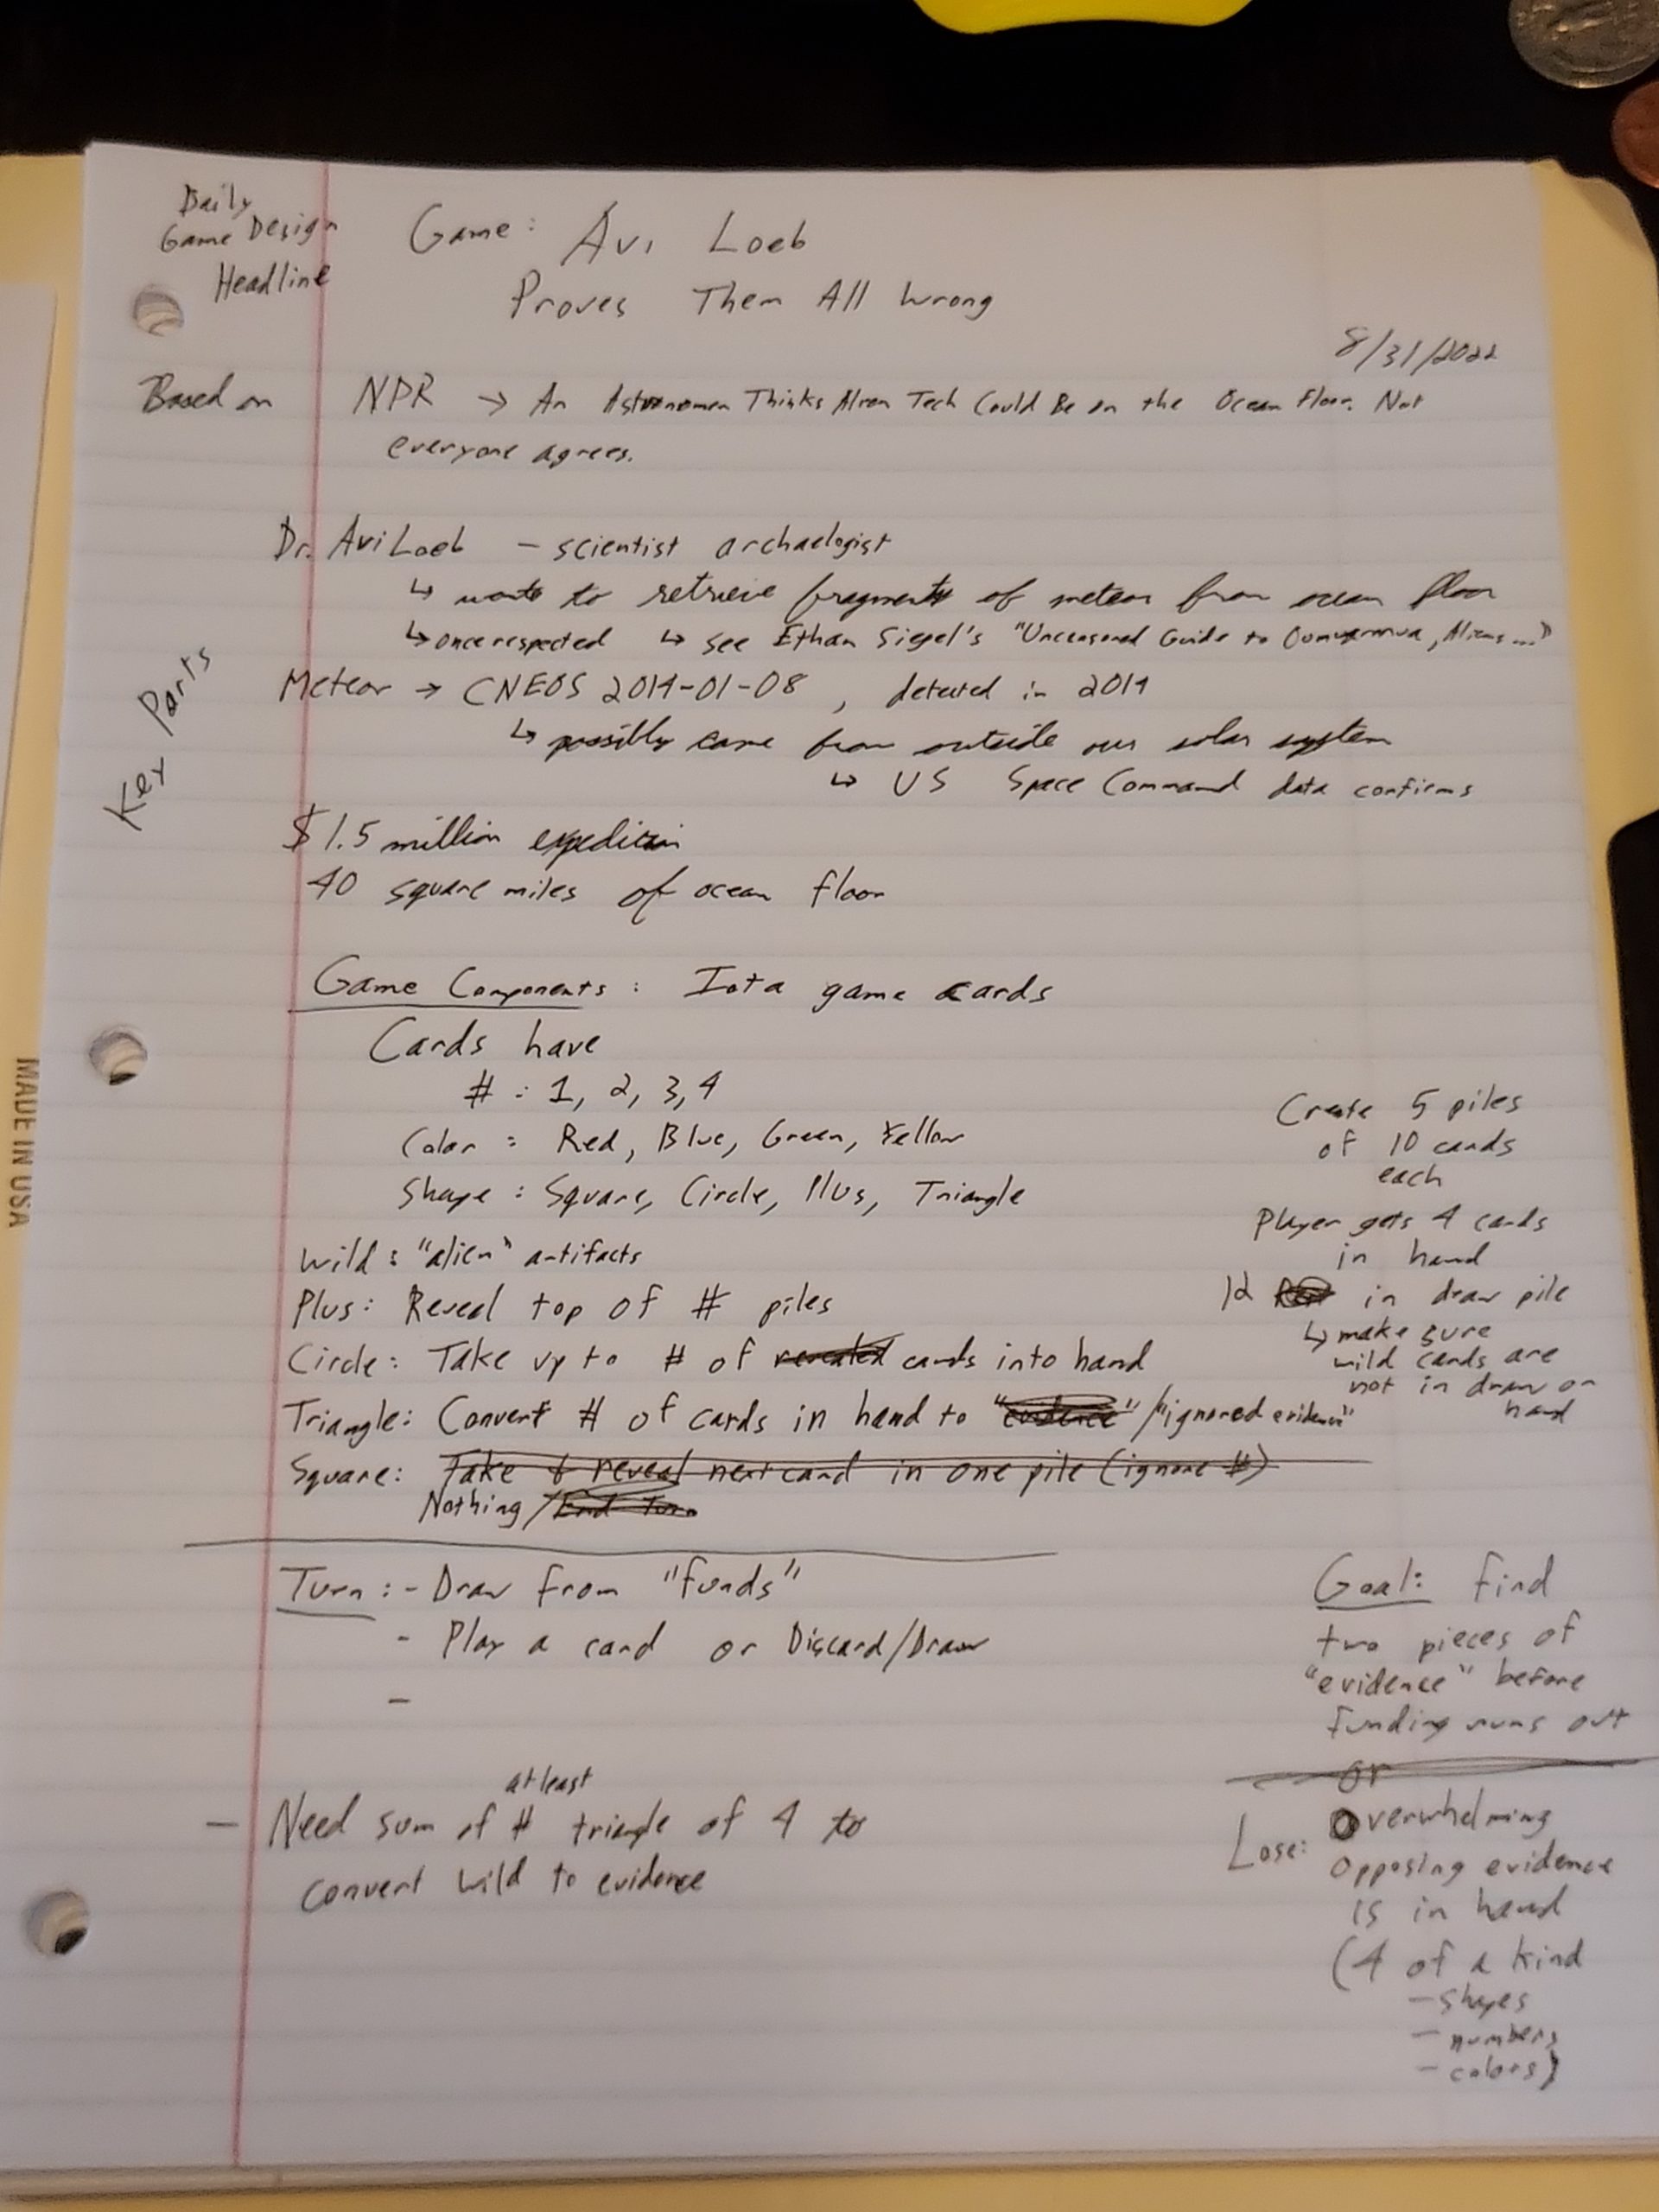 Daily
Game Design
Headline
Game: Avi Loeb
Proves Them All Wrong
8/31/2022
Based on NPR → An Astronomen Thinks Alien Tech Could Be on the Ocean Floor. Not
everyone agrees.
Key Parts
Dr. Avi Loeb - scientist archaelogist
↳ wants to retrieve fragments of meteor from ocean floor
↳ once respected ↳ see Ethan Siegel's "Uncensored Guide to Oumuamua, Aliens..."
Meteor → CNEOS 2014-01-08, detected in 2014
↳ possibly came from outside our solar system
↳ US Space Command data confirms
$1.5 million
40 square miles of ocean floor
Game Components: Iota game cards
Cards have
#: 1, 2, 3, 4
Color: Red, Blue, Green, Yellow
Shape: Square, Circle, Plus, Triangle
Wild: "alien" artifacts
Plus: Reveal top of # piles
Circle: Take up to # of revealed cards into hand
Triangle: Convert # of cards in hand to "evidence" / "ignored evidence"
Square: Take & reveal next card in one pile (ignore #)
Nothing / End Turn
Create 5 piles
of 10 cards
each
Player gets 4 cards
in hand
12 in draw pile
↳ make sure
wild cards are
not in draw or
hand
Turn: - Draw from "funds"
- Play a card or Discard/Draw
-
- Need sum of at least # triangle of 4 to
convert wild to evidence
Goal: Find
two pieces of
"evidence" before
funding runs out
or
Lose: Overwhelming
opposing evidence
is in hand
(4 of a kind
- shapes
- numbers
- colors)
MADE IN USA